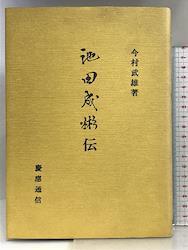 今村武雄著
池田成彬伝
慶應通信